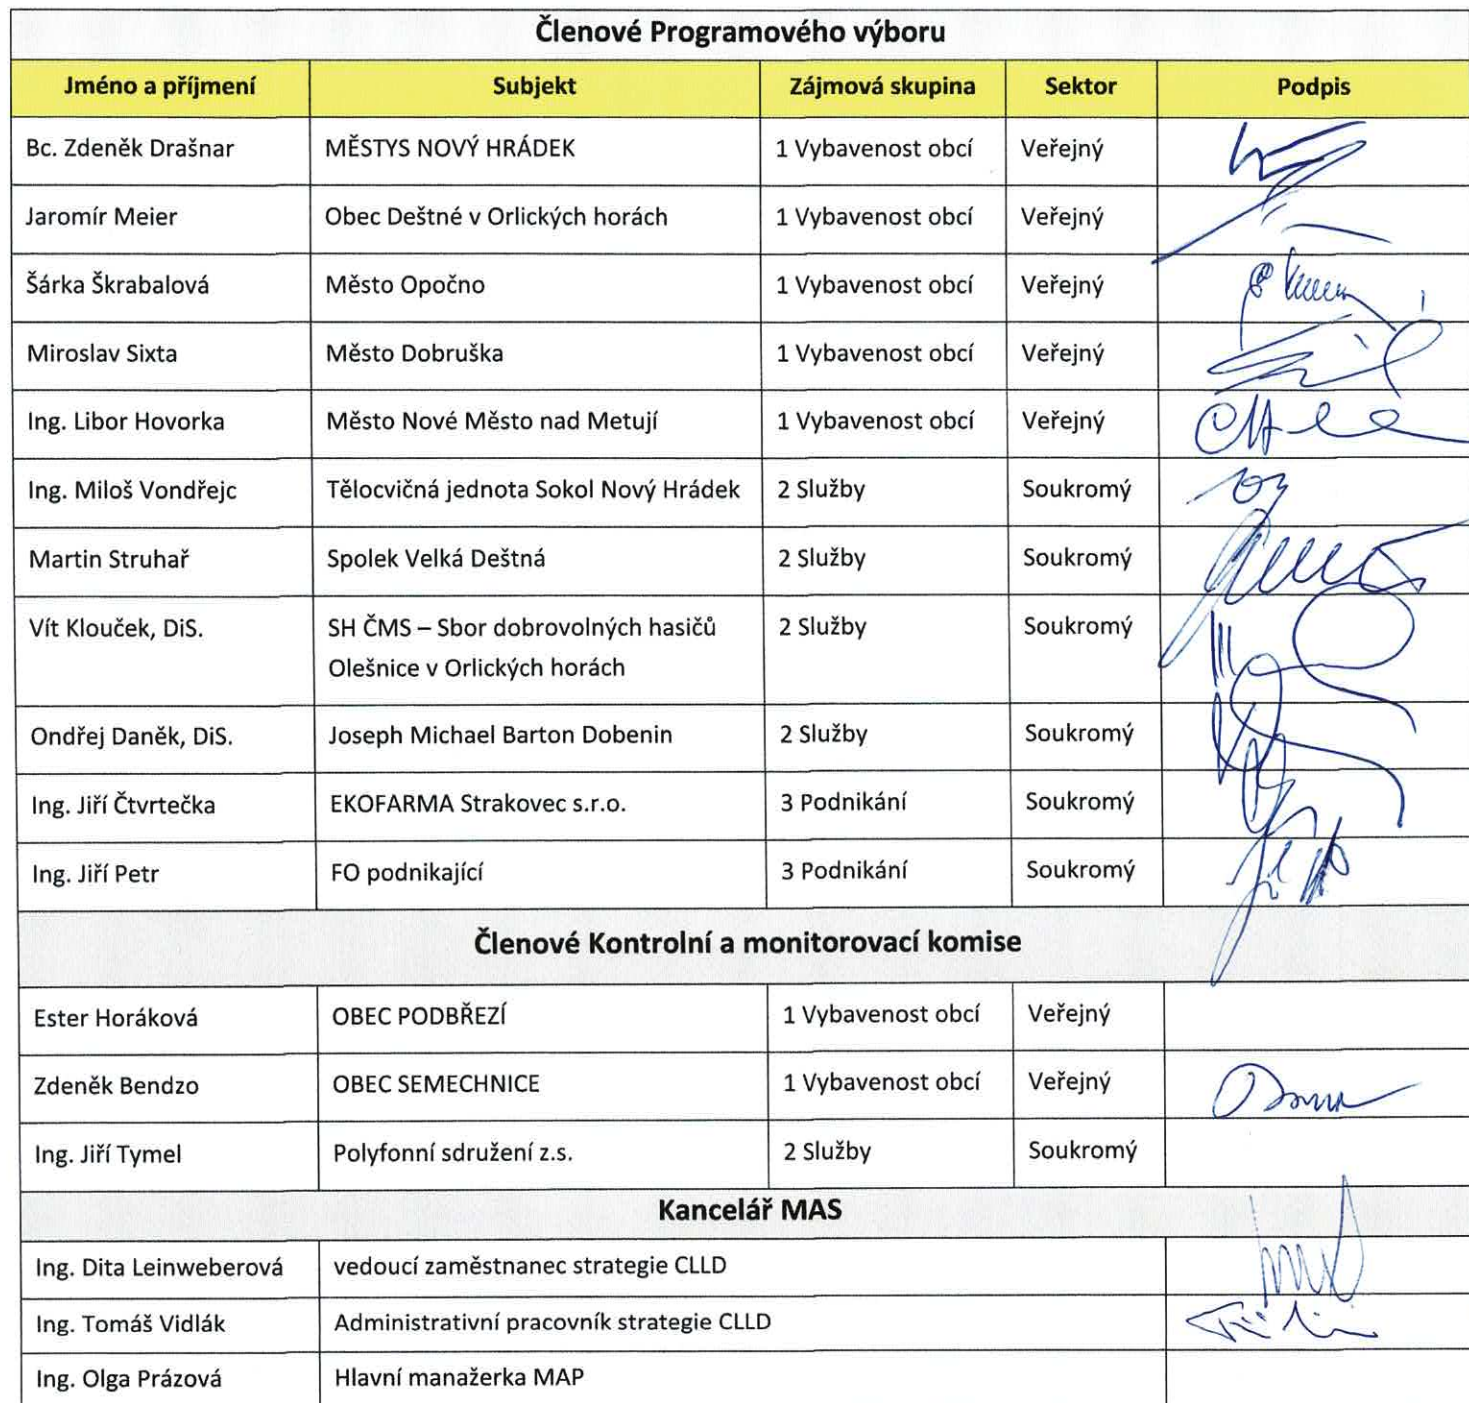 Členové Programového výboru
Jméno a příjmení Subjekt Zájmová skupina Sektor Podpis
Bc. Zdeněk Drašnar MĚSTYS NOVÝ HRÁDEK 1 Vybavenost obcí Veřejný
Jaromír Meier Obec Deštné v Orlických horách 1 Vybavenost obcí Veřejný
Šárka Škrabalová Město Opočno 1 Vybavenost obcí Veřejný
Miroslav Sixta Město Dobruška 1 Vybavenost obcí Veřejný
Ing. Libor Hovorka Město Nové Město nad Metují 1 Vybavenost obcí Veřejný
Ing. Miloš Vondřejc Tělocvičná jednota Sokol Nový Hrádek 2 Služby Soukromý
Martin Struhař Spolek Velká Deštná 2 Služby Soukromý
Vít Klouček, DiS. SH ČMS – Sbor dobrovolných hasičů 2 Služby Soukromý
Olešnice v Orlických horách
Ondřej Daněk, DiS. Joseph Michael Barton Dobenin 2 Služby Soukromý
Ing. Jiří Čtvrtečka EKOFARMA Strakovec s.r.o. 3 Podnikání Soukromý
Ing. Jiří Petr FO podnikající 3 Podnikání Soukromý
Členové Kontrolní a monitorovací komise
Ester Horáková OBEC PODBŘEZÍ 1 Vybavenost obcí Veřejný
Zdeněk Bendzo OBEC SEMECHNICE 1 Vybavenost obcí Veřejný
Ing. Jiří Tymel Polyfonní sdružení z.s. 2 Služby Soukromý
Kancelář MAS
Ing. Dita Leinweberová vedoucí zaměstnanec strategie CLLD
Ing. Tomáš Vidlák Administrativní pracovník strategie CLLD
Ing. Olga Prázová Hlavní manažerka MAP